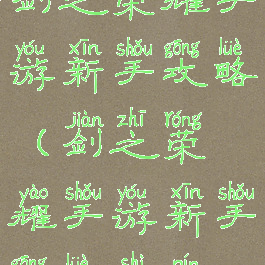 剑之荣耀手
yóu xīn shǒu gōng lüè
游新手攻略
jiàn zhī róng
（剑之荣
yào shǒu yóu xīn shǒu
耀手游新手
gōng lüè shì pín